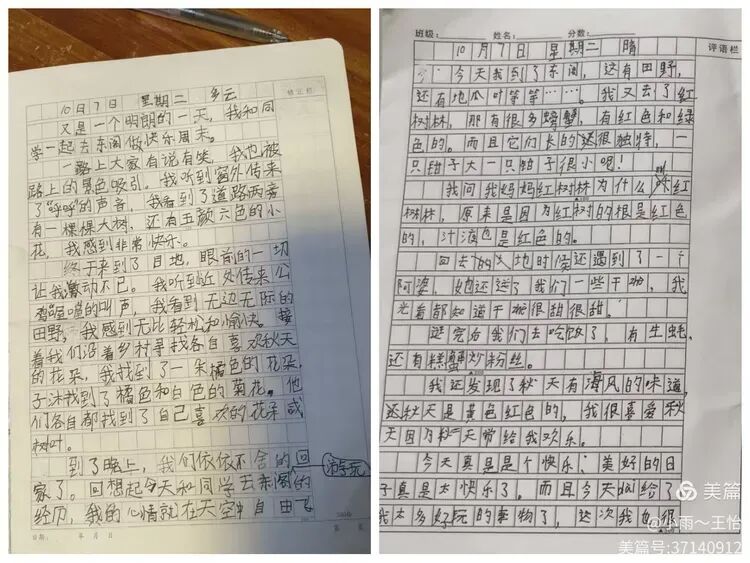 10月7日 星期二 多云
又是一个明朗的一天，我和同
学一起去东阁做快乐周末。
一路上大家有说有笑，我也被
路上的景色吸引。我听到窗外传来
了“呼呼”的声音，我看到了道路两旁
有一棵棵大树，还有五颜六色的小
花，我感到非常快乐。
终于来到了目地，眼前的一切
让我激动不已。我听到近处传来公
鸡喔喔的叫声，我看到无边无际的
田野，我感到无比轻松和愉快。接
着我们沿着乡村寻找各自喜欢秋天
的花朵，我找到了一朵橘色的花朵，
子沐找到了橘色和白色的菊花。他
们各自都找到了自己喜欢的花朵或
树叶。
到了晚上，我们依依不舍的回
游玩
家了。回想起今天和同学去东阁的
经历，我的心情就在天空中自由飞
日期： 年 月 日
班级： 姓名： 分数：
评语栏
10月7日 星期二 晴
今天我到了东阁，这有田野，
还有地瓜叶等等……。我又去了红
树林，那有很多螃蟹，有红色和绿
色的。而且它们长的还很独特，一
只钳子大一只钳子很小吧！
我问我妈妈红树林为什么叫红
树林，原来是因为红树的根是红色
的，汁液也是红色的。
回去的时候还遇到了一个
阿婆，她还送了我们一些干，我
光看都知道干很甜很甜。
逛完后我们去吃饭了，有生蚝，
还有糕蟹炒粉丝。
我还发现了秋天有海风的味道，
还秋天是黄色红色的，我很喜爱秋
天因为秋天带给我欢乐。
今天真是是个快乐、美好的日
子真是太快乐了。而且今天dai给了
我太多好玩的事物了，这次我也很
美篇
@小雨～王怡
美篇号:37140912